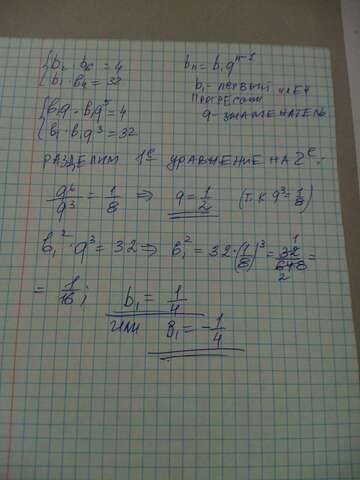 { b₂ · b₆ = 4
{ b₁ · b₄ = 32
bn = b₁ qⁿ⁻¹
b₁ - первый член
прогресии
q - знаменатель
{ b₁q · b₁q⁵ = 4
{ b₁ · b₁q³ = 32
разделим 1е уравнение на 2е:
q⁶/q³ = 1/8 ⇒ q = 1/2 (т.к q³ = 1/8)
b₁² · q³ = 32 ⇒ b₁² = 32 · (1/8)³ = 32/648 =
= 1/16; b₁ = 1/4
или b₁ = -1/4